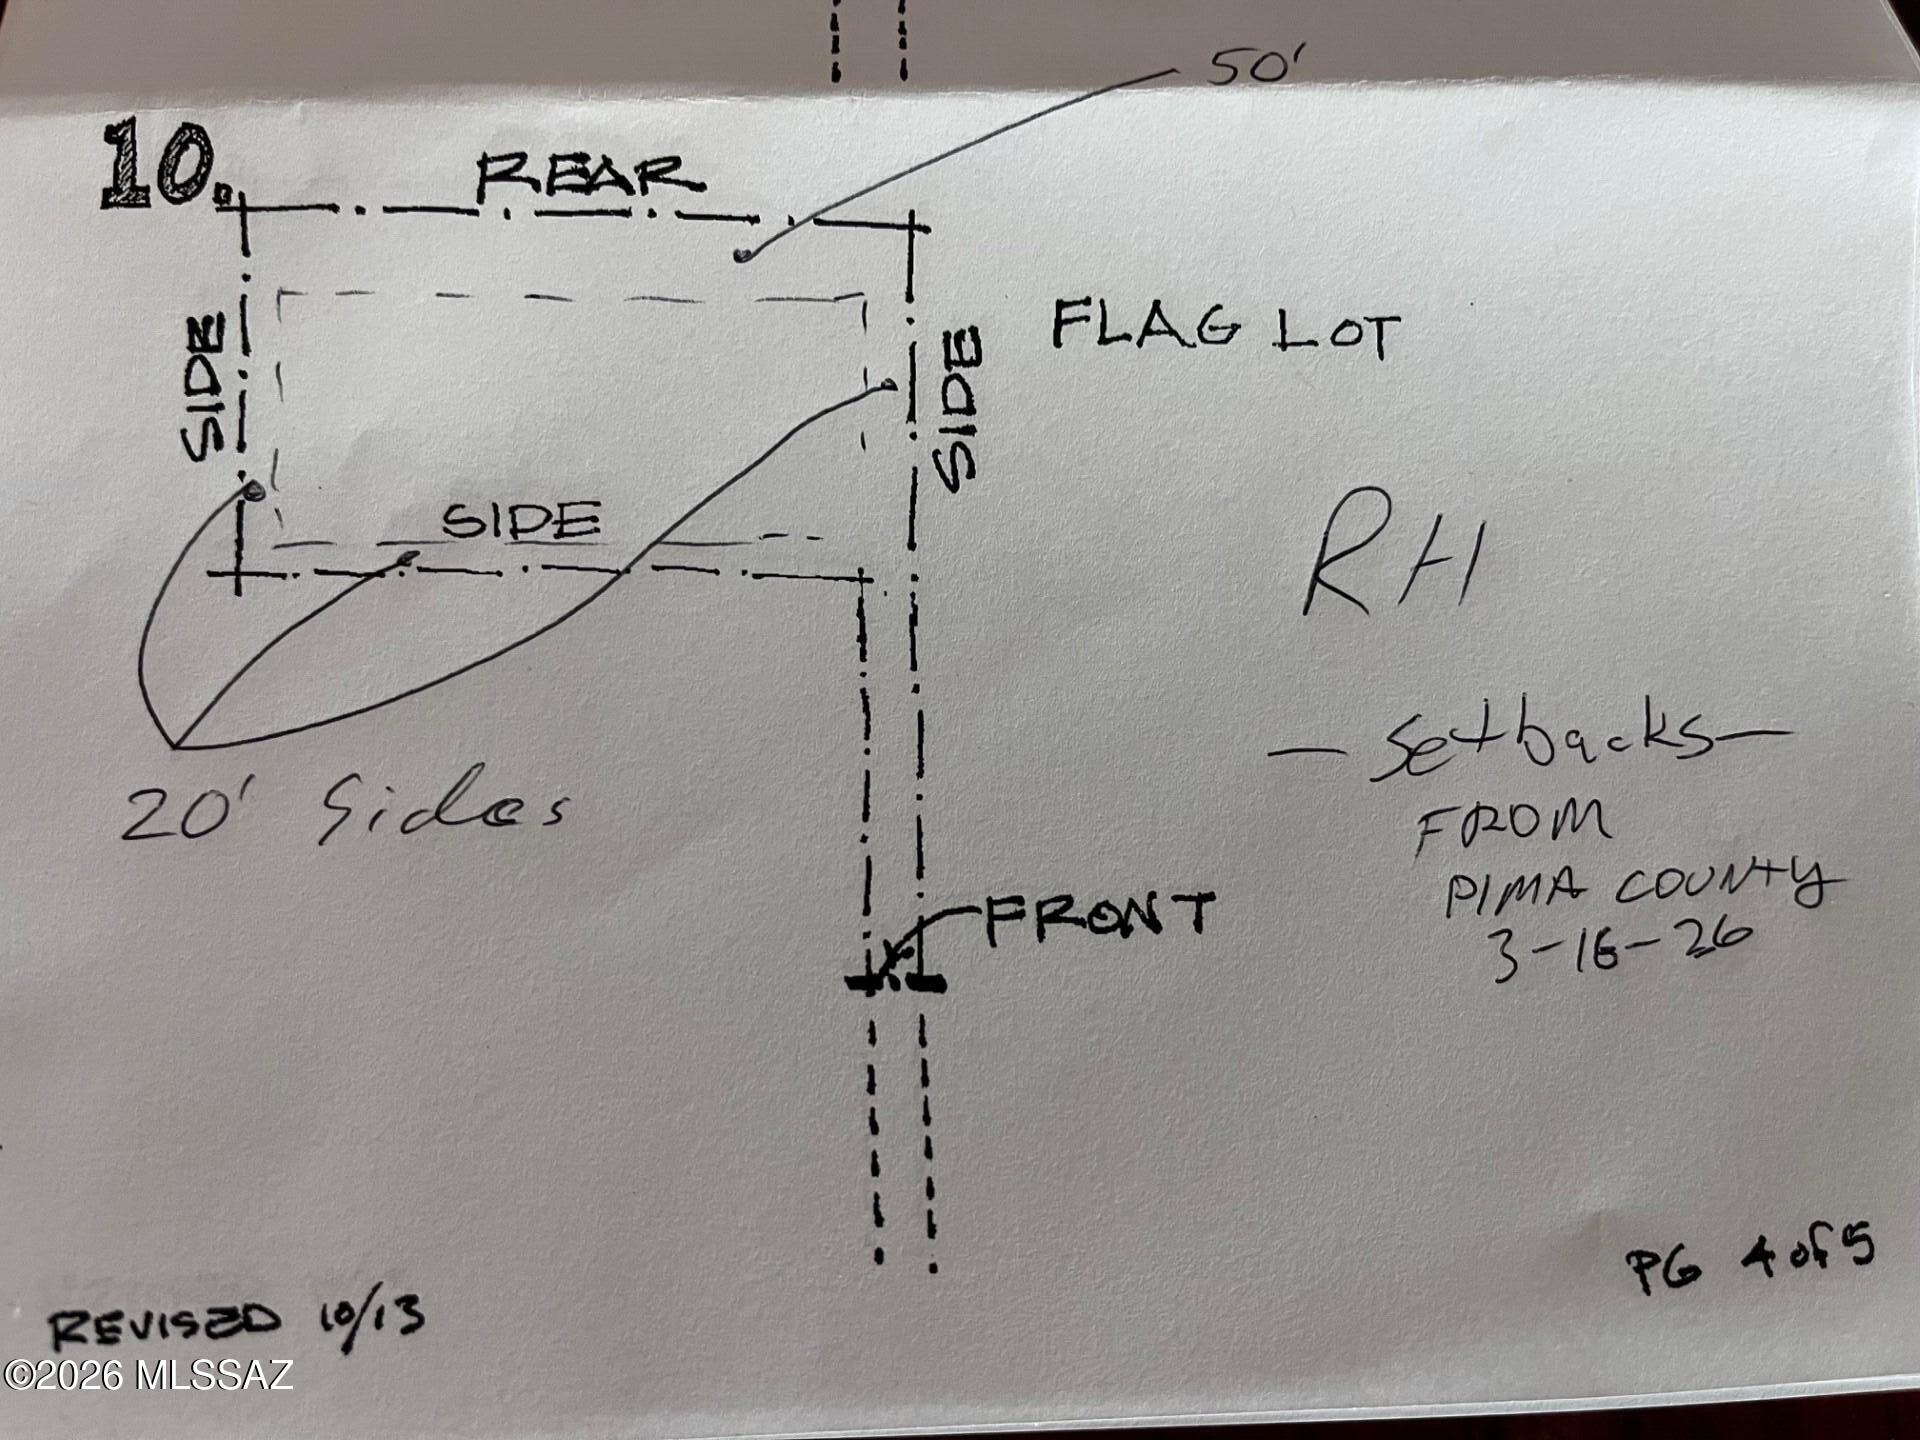 50'
10.
REAR
SIDE
SIDE
FLAG LOT
SIDE
RH
20' Sides
- Setbacks -
FROM
PIMA COUNTY
3-16-26
FRONT
PG 4 of 5
REVISED 10/13
©2026 MLSSAZ